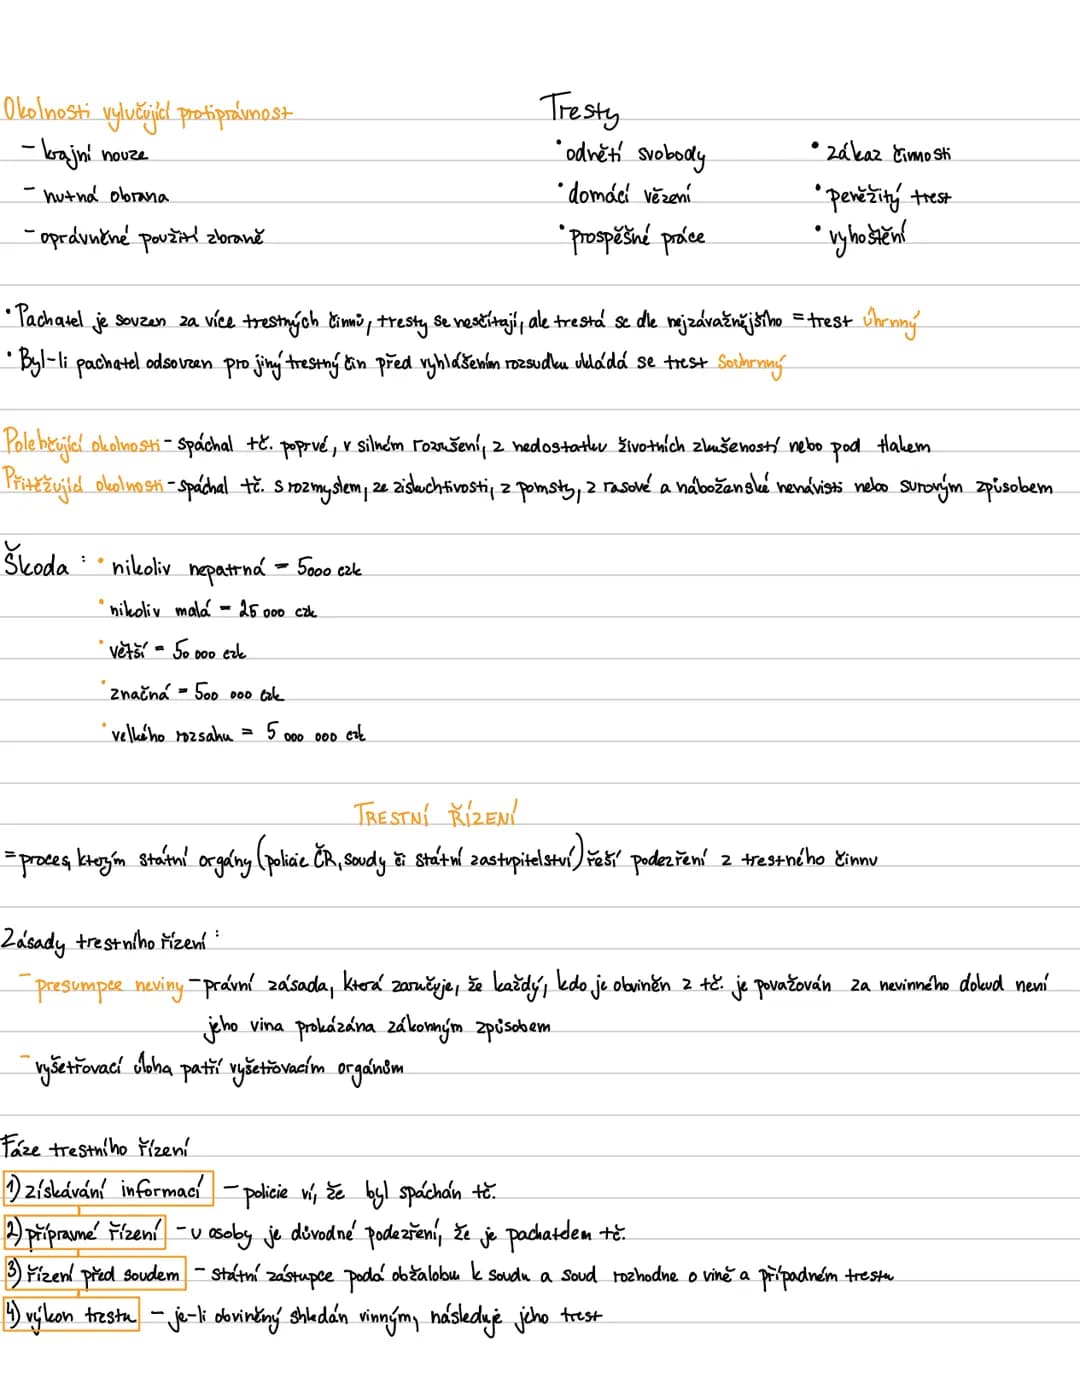 Okolnosti vylučující protiprávnost
- krajní nouze
- nutná obrana
- oprávněné použití zbraně
Tresty
• odnětí svobody
• domácí vězení
• prospěšné práce
• zákaz činnosti
• peněžitý trest
• vyhoštění
• Pachatel je souzen za více trestných činnů, tresty se nesčítají, ale trestá se dle nejzávažnějšího = trest úhrnný
• Byl-li pachatel odsouzen pro jiný trestný čin před vyhlášením rozsudku ukládá se trest Souhrnný
Polehčující okolnosti - spáchal tč. poprvé, v silném rozrušení, z nedostatku životních zkušeností nebo pod tlakem
Přitěžující okolnosti - spáchal tč. s rozmyslem, ze ziskuchtivosti, z pomsty, z rasové a náboženské nenávisti nebo surovým způsobem
Škoda : • nikoliv nepatrná = 5000 czk
• nikoliv malá = 25 000 czk
• větší = 50 000 czk
• značná = 500 000 czk
• velkého rozsahu = 5 000 000 czk
TRESTNÍ ŘÍZENÍ
= proces, kterým státní orgány (policie ČR, soudy či státní zastupitelství) řeší podezření z trestného činnu
Zásady trestního řízení :
- presumpce neviny - právní zásada, která zaručuje, že každý, kdo je obviněn z tč. je považován za nevinného dokud není
jeho vina prokázána zákonným způsobem
- vyšetřovací úloha patří vyšetřovacím orgánům
Fáze trestního řízení
1) získávání informací - policie ví, že byl spáchán tč.
2) přípravné řízení - u osoby je důvodné podezření, že je pachatelem tč.
3) řízení před soudem - státní zástupce podá obžalobu k soudu a soud rozhodne o vině a případném trestu
4) výkon trestu - je-li obviněný shledán vinným, následuje jeho trest